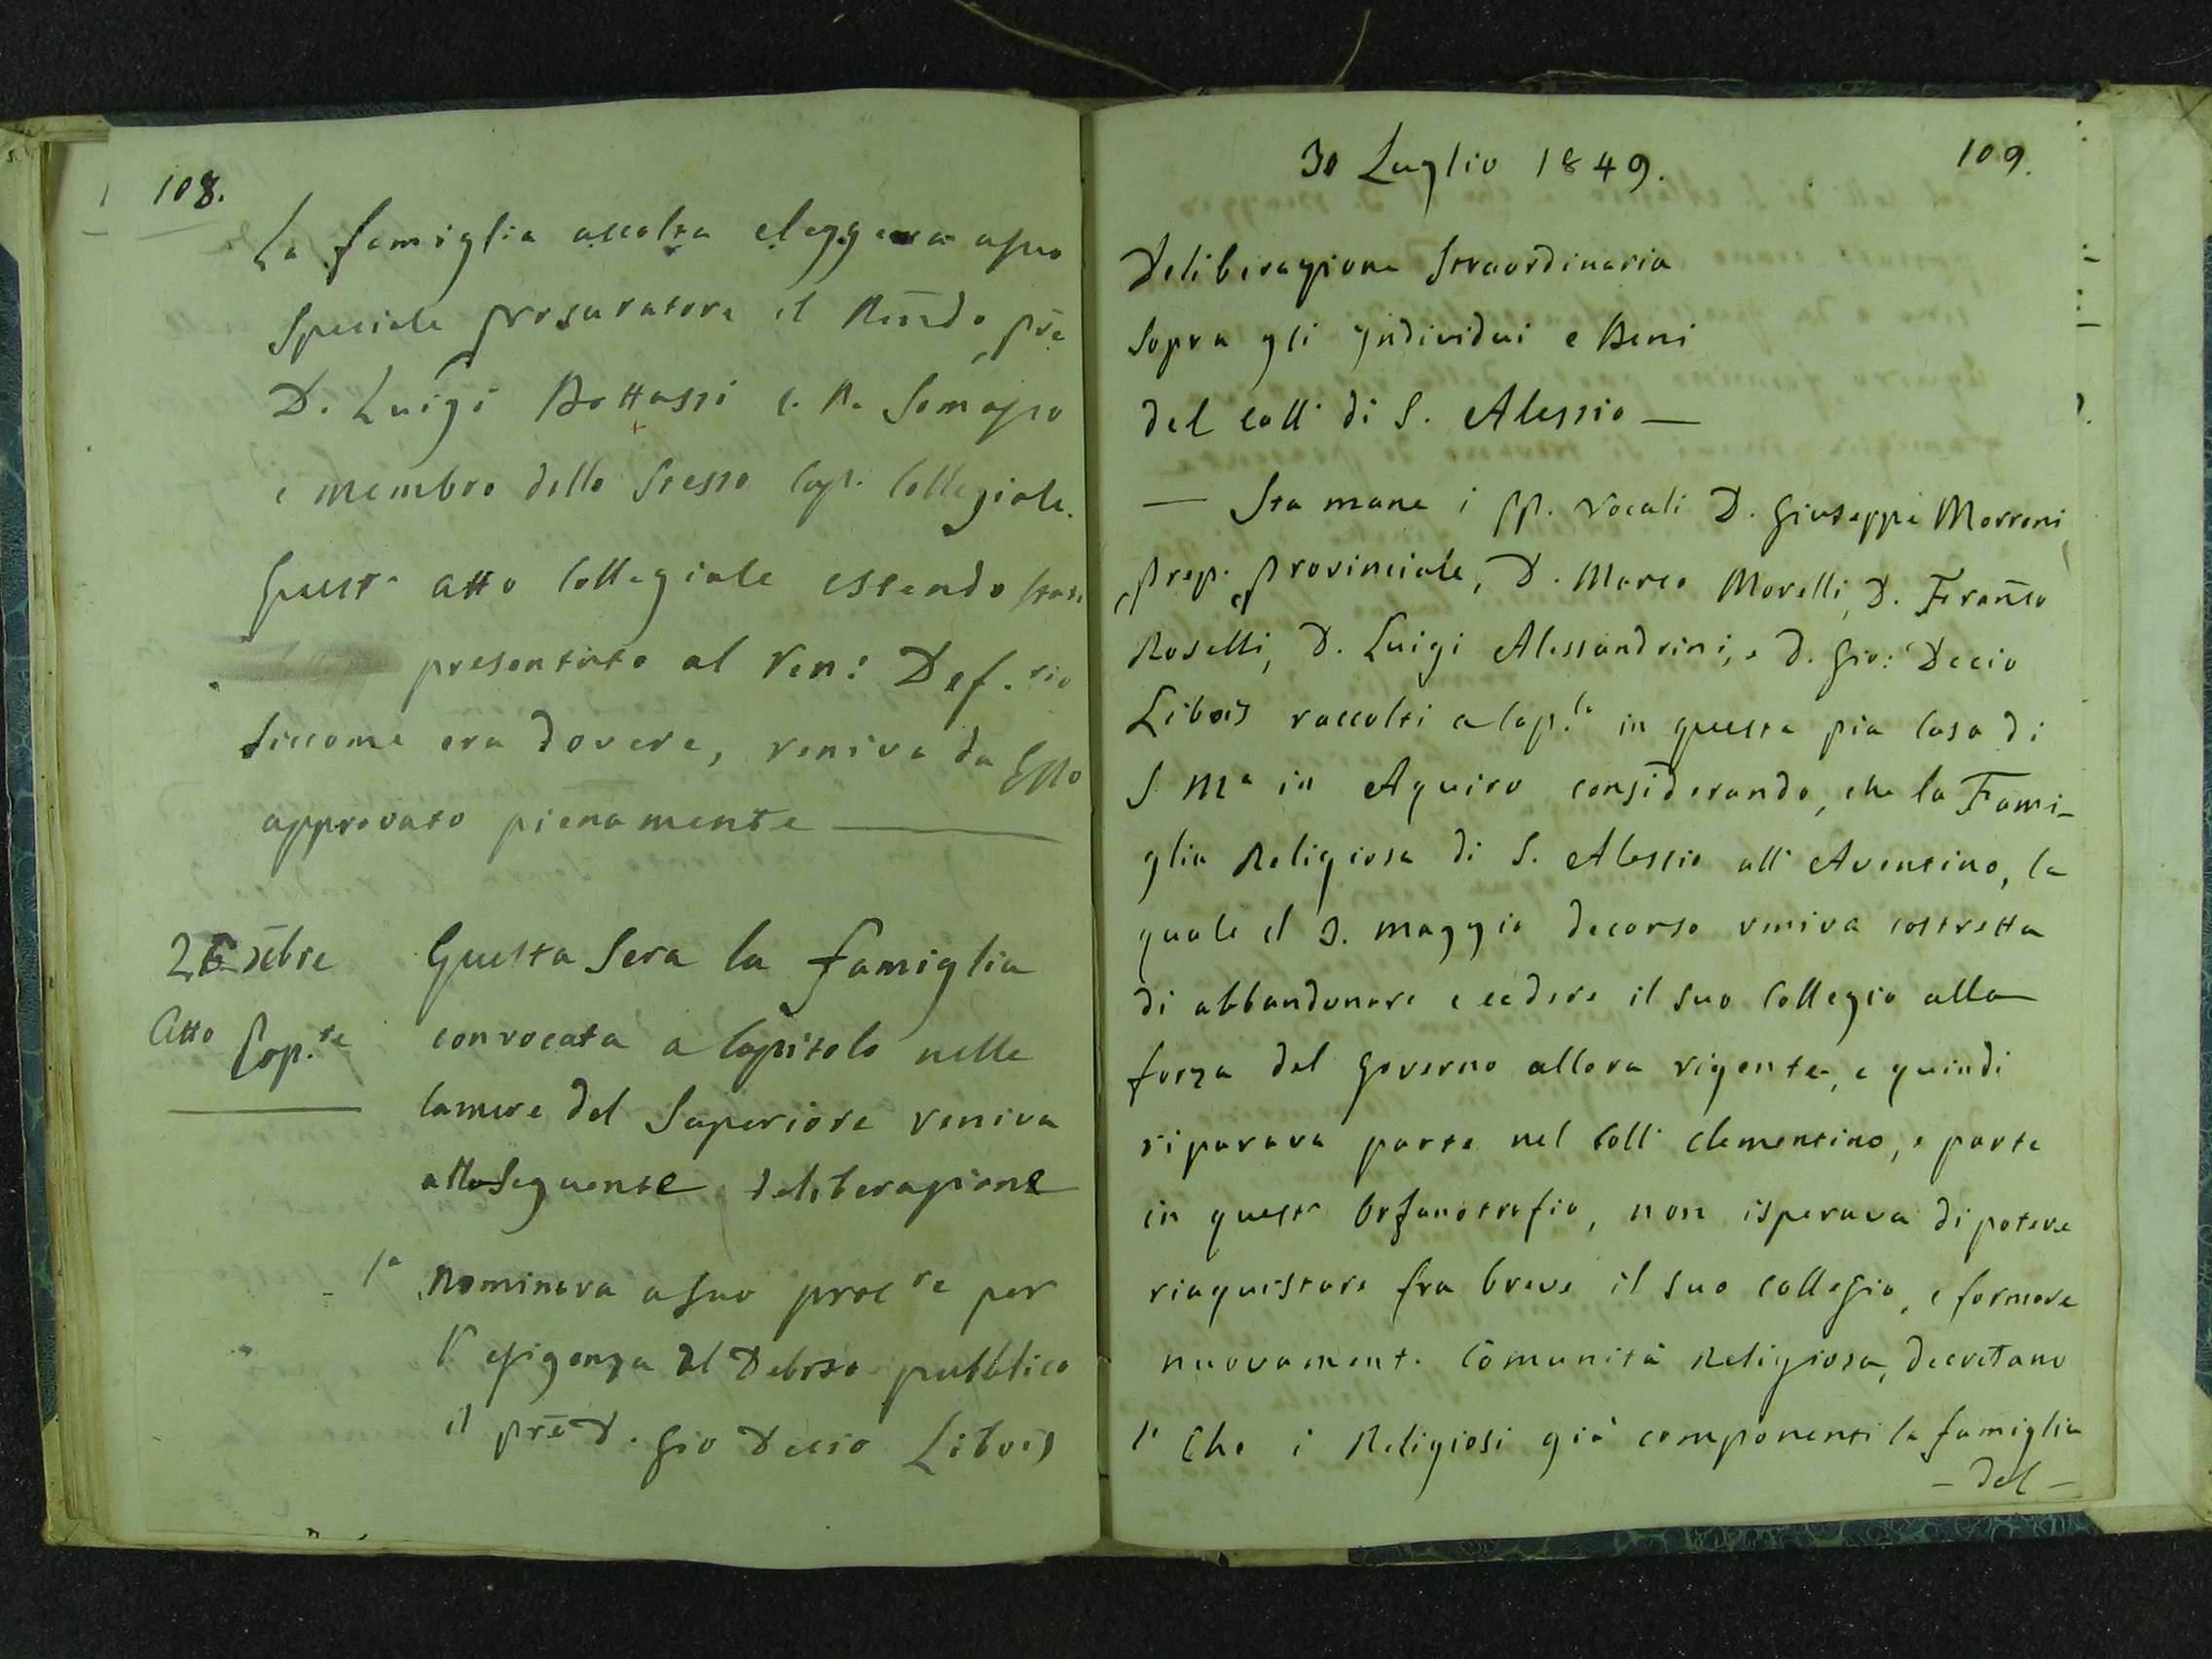 108.
La famiglia accolta eleggeva a suo
speciale procuratore il Rendo pre
D. Luigi Bottassi C. R. Somasco
e membro dello stesso Cap. Collegiale.
Quest' atto Collegiale essendo stato
presentato al Ven: Def.rio
siccome era dovere, veniva da Esso
approvato pienamente —
26 Xbre
Atto Cap.re
Questa sera la famiglia
convocata a Capitolo nelle
Camere del Superiore veniva
alla seguente deliberazione
1° Nominava a suo proc.re per
l'esigenza del Debito pubblico
il pre D. Gio Decio Libois
30 Luglio 1849.
109.
Deliberazione Straordinaria
sopra gli Individui e Beni
del Coll° di S. Alessio —
— Sta mane i PP. Vocali D. Giuseppe Morroni
Prep. Provinciale, D. Marco Morelli, D. Franco
Roselli, D. Luigi Alessandrini, e D. Gio: Decio
Libois raccolti a Cap.lo in questa pia Casa di
S Mª in Aquiro considerando, che la Fami-
glia Religiosa di S. Alessio all' Aventino, la
quale il 3. maggio decorso veniva costretta
di abbandonare e cedere il suo Collegio alla
forza del Governo allora vigente, e quindi
riparava parte nel Coll° Clementino, e parte
in quest' Orfanotrofio, non isperava di potere
riaquistare fra breve il suo Collegio, e formare
nuovament. Comunità Religiosa, decretano
1° Che i Religiosi già componenti la famiglia
- del -